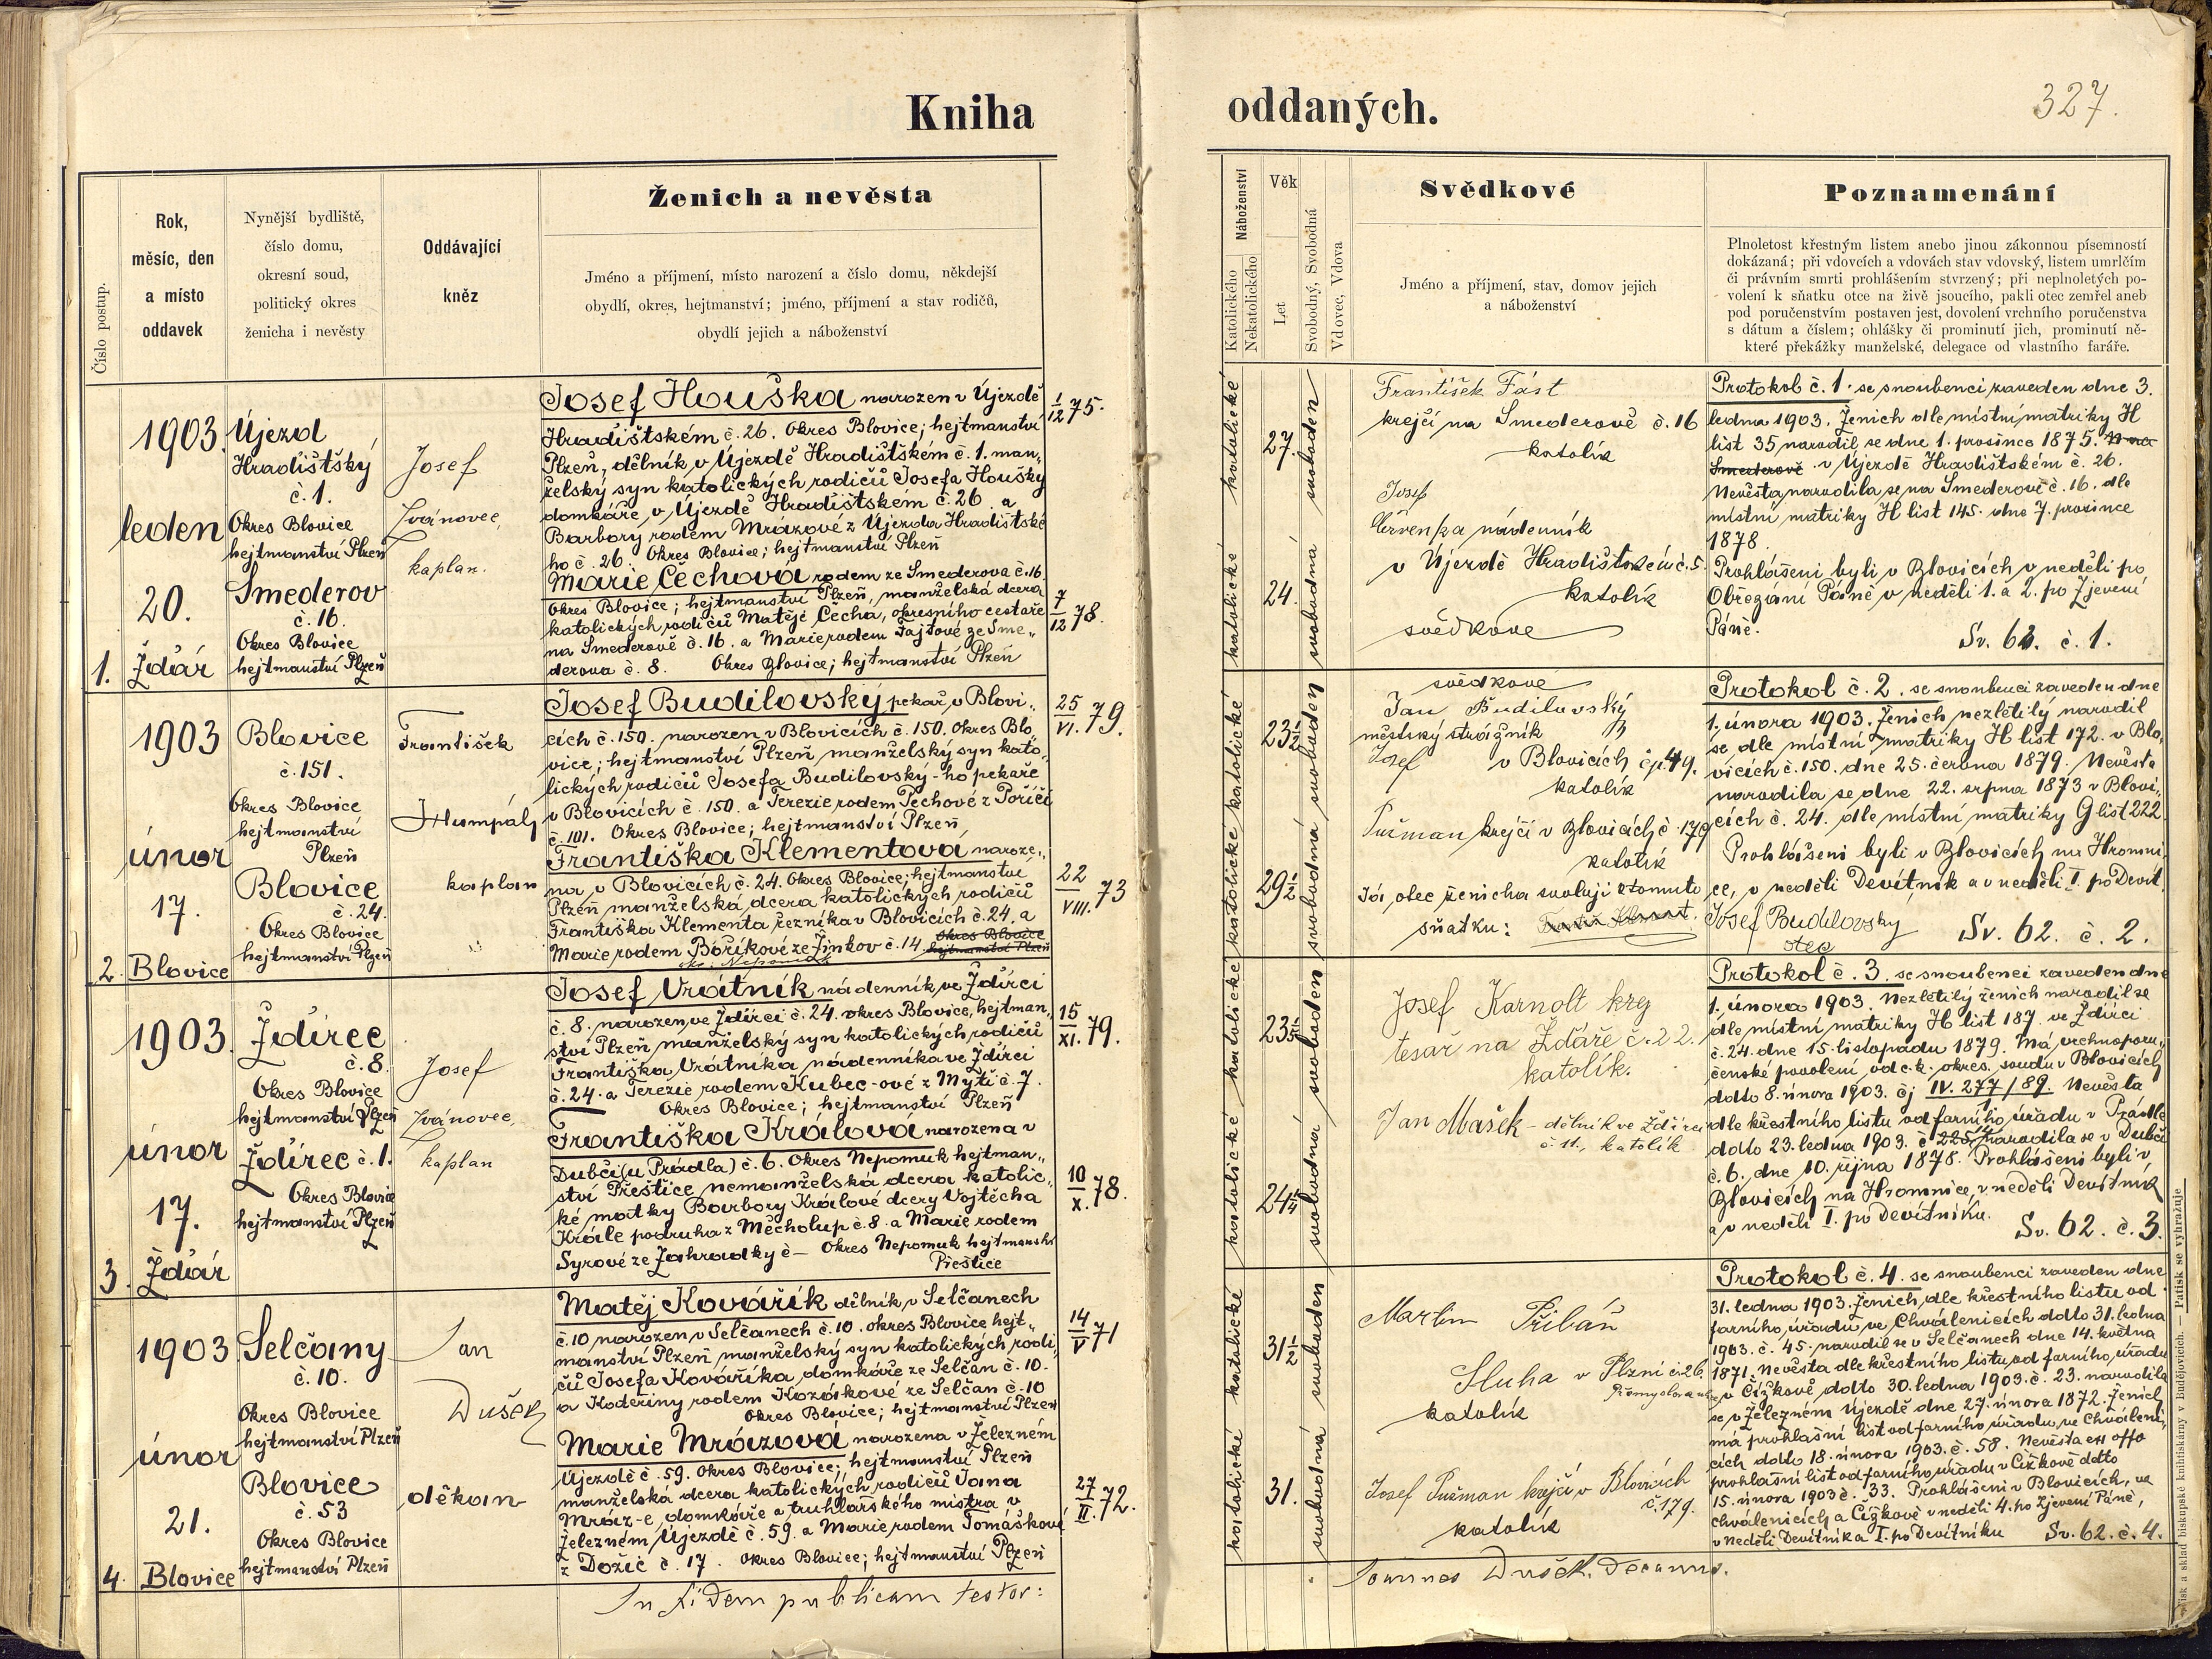 Kniha
oddaných.
327.
Číslo postup.
Rok,
měsíc, den
a místo
oddavek
Nynější bydliště,
číslo domu,
okresní soud,
politický okres
ženicha i nevěsty
Oddávající
kněz
Ženich a nevěsta
Jméno a příjmení, místo narození a číslo domu, někdejší
obydlí, okres, hejtmanství; jméno, příjmení a stav rodičů,
obydlí jejich a náboženství
Náboženství
Katolického
Nekatolického
Věk
Let
Svobodný, Svobodná
Vdovec, Vdova
Svědkové
Jméno a příjmení, stav, domov jejich
a náboženství
Poznamenání
Plnoletost křestným listem anebo jinou zákonnou písemností
dokázaná; při vdovcích a vdovách stav vdovský, listem umrlčím
či právním smrti prohlášením stvrzený; při neplnoletých po-
volení k sňatku otce na živě jsoucího, pakli otec zemřel aneb
pod poručenstvím postaven jest, dovolení vrchního poručenstva
s dátum a číslem; ohlášky či prominutí jich, prominutí ně-
které překážky manželské, delegace od vlastního faráře.
1903.
leden
20.
1. Ždár
Újezd
Hradištský
č. 1.
Okres Blovice
hejtmanství Plzeň
Smederov
č. 16.
Okres Blovice
hejtmanství Plzeň
Josef
Ivánovec,
kaplan.
Josef Houška narozen v Újezdě
Hradištském č. 26. Okres Blovice; hejtmanství
Plzeň, dělník v Újezdě Hradištském č. 1. man„
želský syn katolických rodičů Josefa Houšky
domkáře v Újezdě Hradištském č. 26 a
Barbory rodem Mrázové z Újezda Hradištské
ho č. 26. Okres Blovice; hejtmanství Plzeň
1/12 75.
Marie Čechová rodem ze Smederova č. 16.
Okres Blovice; hejtmanství Plzeň, manželská dcera
katolických rodičů Matěje Čecha, okresního cestaře
na Smederově č. 16. a Marie rodem Fajtové ze Sme„
derova č. 8. Okres Blovice; hejtmanství Plzeň
7/12 78.
katolické
katolické
27.
24.
svoboden
svobodná
František Fást
krejčí na Smederově č. 16
katolík
Josef
Červenka nádenník
v Újezdě Hradištském č. 5.
katolík
svědkové
Protokol č. 1. se snoubenci zaveden dne 3.
ledna 1903. Ženich dle místní matriky H
list 35 narodil se dne 1. prosince 1875. na
Smederově v Újezdě Hradištském č. 26.
Nevěsta narodila se na Smederově č. 16. dle
místní matriky H list 145. dne 7. prosince
1878.
Prohlášeni byli v Blovicích v neděli po
Obřezání Páně v neděli 1. a 2. po Zjevení
Páně.
Sv. 62. č. 1.
1903
únor
17.
2. Blovice
Blovice
č. 151.
Okres Blovice
hejtmanství
Plzeň
Blovice
č. 24.
Okres Blovice
hejtmanství Plzeň
František
Humpál
kaplan
Josef Budilovský pekař v Blovi„
cích č. 150. narozen v Blovicích č. 150. Okres Blo„
vice; hejtmanství Plzeň manželský syn kato„
lických rodičů Josefa Budilovský-ho pekaře
v Blovicích č. 150. a Terezie rodem Pechové z Poříčí
č. 101. Okres Blovice; hejtmanství Plzeň,
25/VI. 79.
Františka Klementova naroze„
na v Blovicích č. 24. Okres Blovice; hejtmanství
Plzeň manželská dcera katolických rodičů
Františka Klementa řezníka v Blovicích č. 24. a
Marie rodem Boříkové ze Žinkov č. 14. Okres Blovice
hejtmanství Plzeň
ok. Nepomuk
22/VIII. 73
katolické
katolické
23½
29½
svoboden
svobodná
svědkové
Jan Budilovský
městský strážník
v Blovicích čp. 49.
katolík
Josef
Pušman krejčí v Blovicích č. 179
katolík
Já, otec ženicha svoluji k tomuto
sňatku:
Josef Budilovský
otec
Protokol č. 2. se snoubenci zaveden dne
1. února 1903. Ženich nezletilý narodil
se dle místní matriky H list 172. v Blo„
vicích č. 150. dne 25. června 1879. Nevěsta
narodila se dne 22. srpna 1873 v Blovi„
cích č. 24. dle místní matriky G list 222.
Prohlášeni byli v Blovicích na Hromni
ce, v neděli Devítník a v neděli I. po Devít.
Sv. 62. č. 2.
1903.
únor
17.
3. Ždár
Ždírec
č. 8.
Okres Blovice
hejtmanství Plzeň
Ždírec č. 1.
Okres Blovice
hejtmanství Plzeň
Josef
Ivánovec,
kaplan
Josef Vrátník nádenník ve Ždírci
č. 8. narozen ve Ždírci č. 24. okres Blovice, hejtman„
ství Plzeň manželský syn katolických rodičů
Františka Vrátníka nádenníka ve Ždírci
č. 24. a Terezie rodem Kubec-ové z Mýti č. 7.
Okres Blovice; hejtmanství Plzeň
15/XI. 79.
Františka Králova narozena v
Dubči (u Prádla) č. 6. Okres Nepomuk hejtman„
ství Přeštice nemanželská dcera katolic„
ké matky Barbory Králové dcery Vojtěcha
Krále podruha z Měcholup č. 8. a Marie rodem
Syrové ze Zahrádky č — Okres Nepomuk hejtmanství
Přeštice
10/X. 78.
katolické
katolické
svoboden
svobodná
Josef Karnolt
tesař na Ždáře č. 22.
katolík.
Jan Mašek - dělník ve Ždírci
č. 11., katolík
Protokol č. 3. se snoubenci zaveden dne
1. února 1903. Nezletilý ženich narodil se
dle místní matriky H list 187. ve Ždírci
č. 24. dne 15. listopadu 1879. Má vrchnoporu„
čenské povolení od c.k. okres. soudu v Blovicích
ddto 8. února 1903. čj IV. 277/89. Nevěsta
dle křestního listu od farního úřadu v Prádle
ddto 23. ledna 1903. č. narodila se v Dubči
č. 6. dne 10. října 1878. Prohlášeni byli v
Blovicích na Hromnice, v neděli Devítník
a v neděli I. po Devítníku.
Sv. 62. č. 3.
1903
únor
21.
4. Blovice
Selčany
č. 10.
Okres Blovice
hejtmanství Plzeň
Blovice
č. 53
Okres Blovice
hejtmanství Plzeň
Jan
Dušek
děkan
Matěj Kovářík dělník v Selčanech
č. 10 narozen v Selčanech č. 10. okres Blovice hejt„
manství Plzeň manželský syn katolických rodi„
čů Josefa Kováříka domkáře ze Selčan č. 10.
a Kateřiny rodem Kozákové ze Selčan č. 10
Okres Blovice; hejtmanství Plzeň
14/V 71
Marie Mrázová narozena v Železném
Újezdě č. 59. Okres Blovice; hejtmanství Plzeň
manželská dcera katolických rodičů Jana
Mráz-e, domkáře a truhlářského mistra v
Železném Újezdě č. 59. a Marie rodem Tomáškové
z Dožic č. 17. Okres Blovice; hejtmanství Plzeň
27/II. 72.
katolické
katolické
31½
31.
svoboden
svobodná
Martin Přibáň
Sluha v Plzni č. 26.
katolík
Josef Pušman krejčí v Blovicích
č. 179.
katolík
Protokol č. 4. se snoubenci zaveden dne
31. ledna 1903. Ženich, dle křestního listu od
farního úřadu ve Chválenicích ddto 31. ledna
1903. č. 45. narodil se v Selčanech dne 14. května
1871. Nevěsta dle křestního listu od farního úřadu
v Čížkově ddto 30. ledna 1903. č. 23. narodila
se v Železném Újezdě dne 27. února 1872. Ženich
má prohlašní list od farního úřadu ve Chváleni„
cích ddto 18. února 1903. č. 58. Nevěsta ex offo
prohlašní list od farního úřadu v Čížkově ddto
15. února 1903 č. 33. Prohlášeni v Blovicích, ve
Chválenicích a Čížkově v neděli 4. po Zjevení Páně,
v neděli Devítníka I. po Devítníku Sv. 62. č. 4.
In fidem publicam testor:
Joannes Dušek. Decanus.
Tisk a sklad biskupské knihtiskárny v Budějovicích. — Patisk se vyhražuje